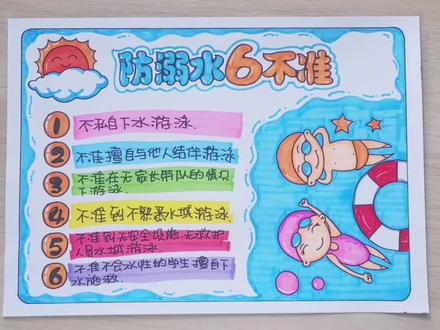 防溺水6不准
1 不私自下水游泳.
2 不准擅自与他人结伴游泳
3 不准在无家长带队的情况
下游泳.
4 不准到不熟悉水域游泳
5 不准到无安全设施.无救护
人员水域游泳.
6 不准不会水性的学生擅自下
水施救.